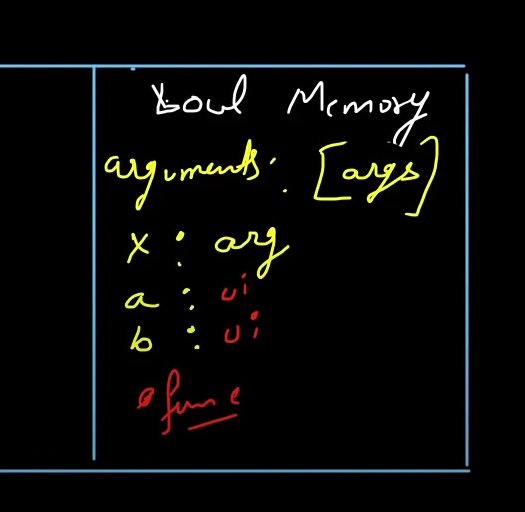 Local Memory
arguments: [args]
x : arg
a : ui
b : ui
func